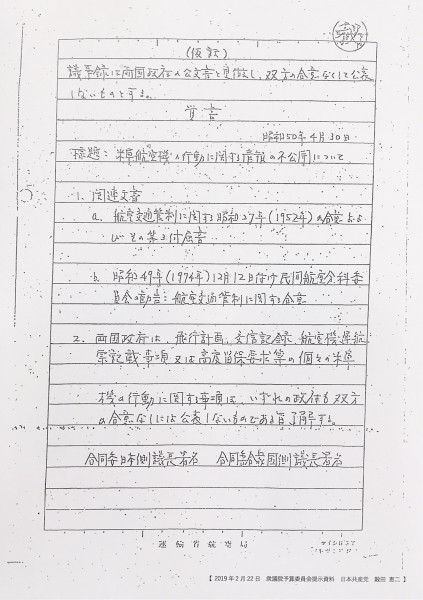 (仮訳)
議事録は両国政府の公文書と見做し、双方の合意なくしては公表
しないものとする。
覚書
昭和50年4月30日
標題:米軍航空機の行動に関する情報の不公開について
1. 関連文書
a. 航空交通管制に関する昭和27年(1952年)の合意および
びその第3付属書
b. 昭和49年(1974年)12月12日付け民間航空分科委
員会の勧告:航空交通管制に関する合意
2. 両国政府は、飛行計画、交信記録、航空機運航
票記載事項又は高度留保要求等の個々の米軍
機の行動に関する事項は、いずれの政府も双方
の合意なしには公表しないものである旨了解する。
合同委日本側議長署名 合同委合衆国側議長署名
運輸省航空局
【 2019年2月22日 衆議院予算委員会提示資料 日本共産党 穀田 恵二 】